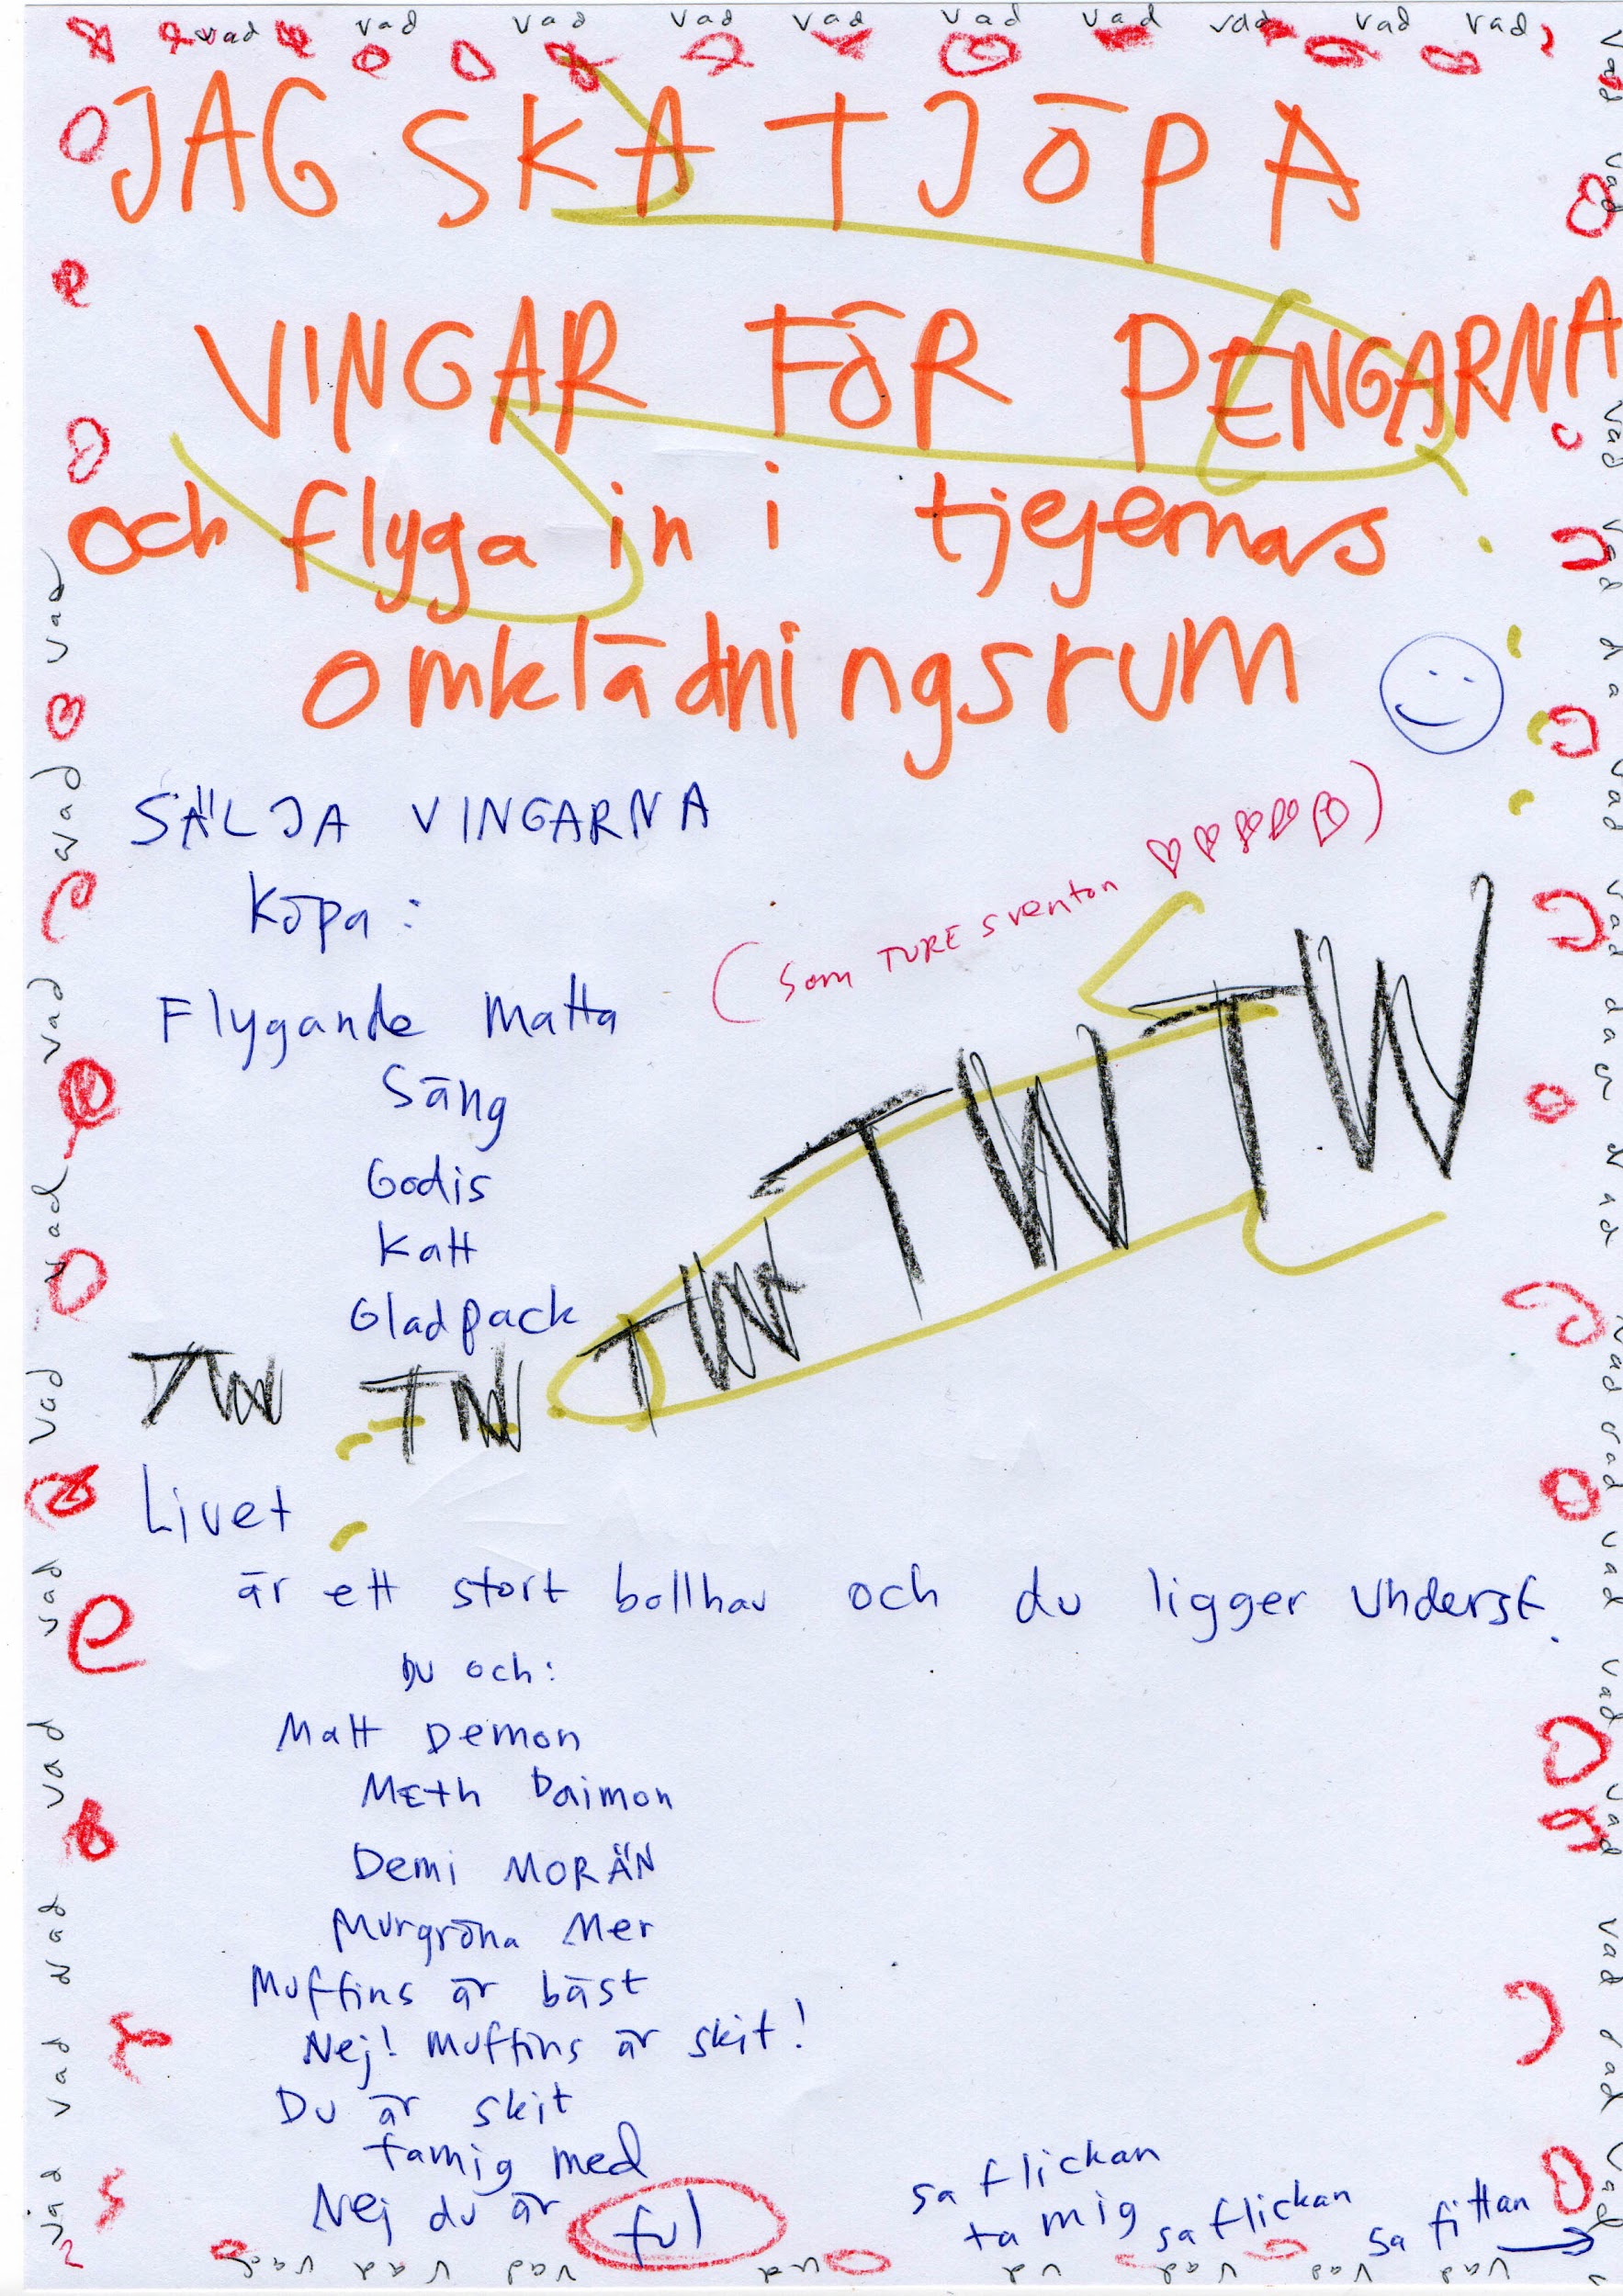 vad vad vad vad vad vad vad vad vad vad
JAG SKA TJÖPA
VINGAR FÖR PENGARNA
och flyga in i tjejernas
omklädningsrum
SÄLJA VINGARNA
Köpa:
(som TURE sventon ♡♡♡♡♡)
Flygande Matta
Säng
Godis
Katt
Gladpack
TW TW TW TW TW
Livet
är ett stort bollhav och du ligger underst.
DU och:
Matt Demon
Meth Daimon
Demi MORÄN
Murgröna Mer
Muffins är bäst
Nej! Muffins är skit!
Du är skit
tamig med
Nej du är ful
sa flickan
ta mig sa flickan sa fittan →
vad vad vad vad vad vad vad vad vad vad
vad vad vad vad vad vad vad
vad vad vad vad vad vad